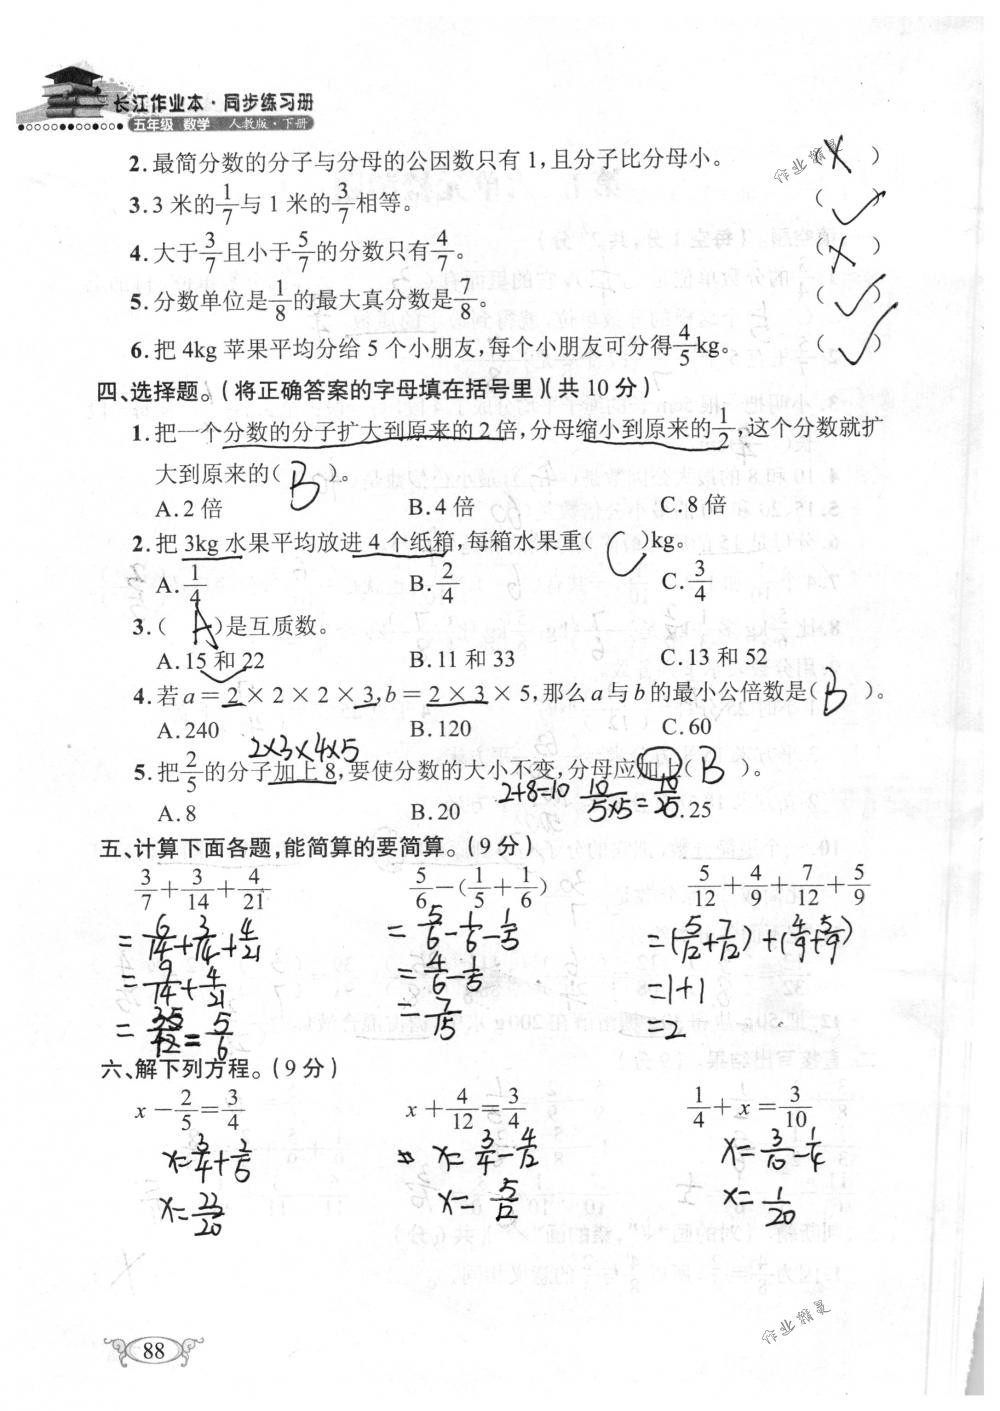 长江作业本·同步练习册
五年级 数学 人教版·下册
2.最简分数的分子与分母的公因数只有1,且分子比分母小。 (×)
3.3米的1/7与1米的3/7相等。 (✓)
4.大于3/7且小于5/7的分数只有4/7。 (×)
5.分数单位是1/8的最大真分数是7/8。 (✓)
6.把4kg苹果平均分给5个小朋友,每个小朋友可分得4/5kg。 (✓)
四、选择题。(将正确答案的字母填在括号里)(共10分)
1.把一个分数的分子扩大到原来的2倍,分母缩小到原来的1/2,这个分数就扩
大到原来的( B )。
A.2倍 B.4倍 C.8倍
2.把3kg水果平均放进4个纸箱,每箱水果重( C )kg。
A.1/4 B.2/4 C.3/4
3.( A )是互质数。
A.15和22 B.11和33 C.13和52
4.若a=2×2×2×3,b=2×3×5,那么a与b的最小公倍数是( B )。
A.240 B.120 C.60
2×3×4×5
5.把2/5的分子加上8,要使分数的大小不变,分母应加上( B )。
2+8=10 10/5×5=10/25
A.8 B.20 C.25
五、计算下面各题,能简算的要简算。(9分)
3/7+3/14+4/21 5/6-(1/5+1/6) 5/12+4/9+7/12+5/9
=6/14+3/14+4/21 =5/6-1/6-1/5 =(5/12+7/12)+(4/9+5/9)
=9/14+4/21 =4/6-1/5 =1+1
=35/42=5/6 =7/15 =2
六、解下列方程。(9分)
x-2/5=3/4 x+4/12=3/4 1/4+x=3/10
x=3/4+2/5 x=3/4-4/12 x=3/10-1/4
x=23/20 x=5/12 x=1/20
作业精灵
88